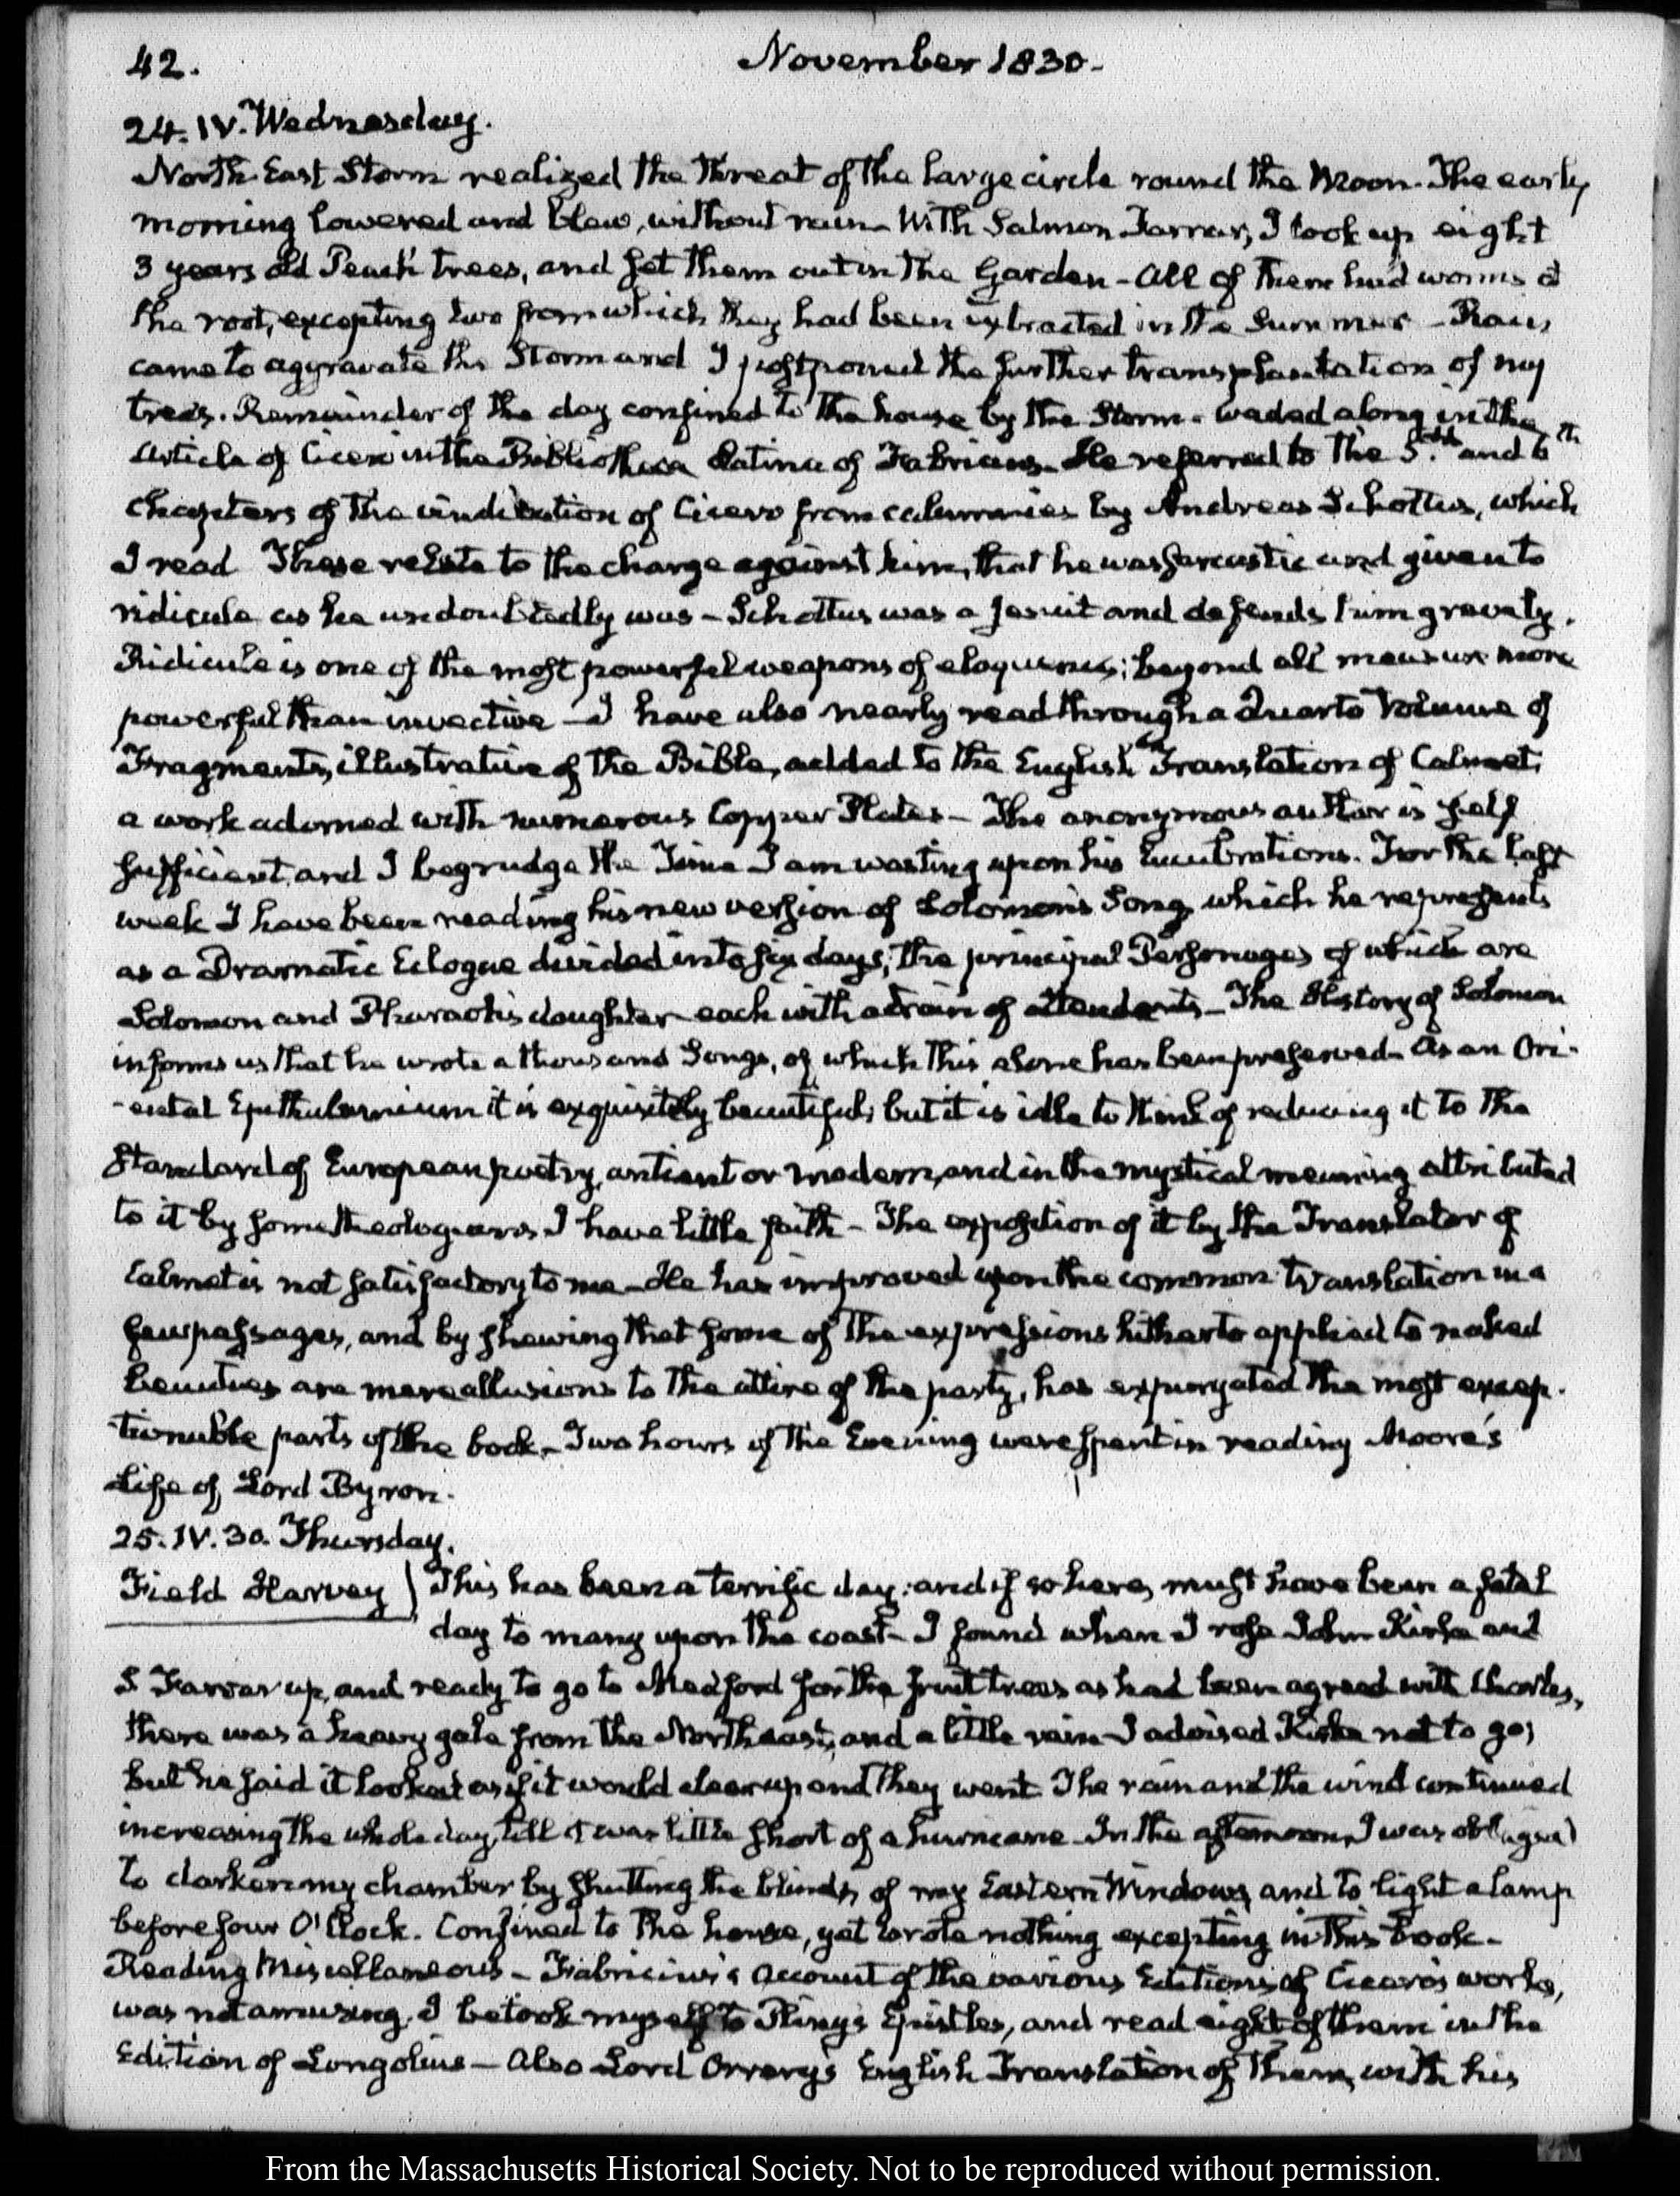 42.
November 1830.
24. IV. Wednesday.
North-East Storm realized the threat of the large circle round the Moon. The early
morning lowered and blew, without rain. With Salmon Farrar, I took up eight
3 years old Peach trees, and set them out in the Garden - All of them had worms at
the root, excepting two from which they had been extracted in the Summer - Rain
came to aggravate the Storm and I postponed the further transplantation of my
trees. Remainder of the day confined to the house by the Storm. Waded along in the
Article of Cicero in the Bibliotheca Latina of Fabricius. He referred to the 5th and 6th
Chapters of the vindication of Cicero from calumnies by Andreas Schottus, which
I read These relate to the charge against him, that he was sarcastic and given to
ridicule as he undoubtedly was - Schottus was a Jesuit and defends him gravely.
Ridicule is one of the most powerful weapons of eloquence; beyond all measure more
powerful than invective - I have also nearly read through a Quarto Volume of
Fragments, illustrative of the Bible, added to the English Translation of Calmet;
a work adorned with numerous Copper Plates - The anonymous author is self
sufficient, and I begrudge the Time I am wasting upon his lucubrations. For the last
week I have been reading his new version of Solomon's Song, which he represents
as a Dramatic Eclogue divided into six days; the principal Personages of which are
Solomon and Pharaoh's daughter each with a train of attendants - The History of Solomon
informs us that he wrote a thousand Songs, of which this alone has been preserved. As an Ori-
-ental Epithalamium it is exquisitely beautiful; but it is idle to think of reducing it to the
standard of European poetry, antient or modern, and in the mystical meaning attributed
to it by some theologians, I have little faith - The exposition of it by the Translator of
Calmet is not satisfactory to me - He has improved upon the common translation in a
few passages, and by shewing that some of the expressions hitherto applied to naked
beauties are mere allusions to the attire of the party, has expurgated the most excep-
tionable parts of the book. Two hours of the Evening were spent in reading Moore's
Life of Lord Byron.
25. IV. 30. Thursday.
Field Harvey
This has been a terrific day: and if so here, must have been a fatal
day to many upon the coast - I found when I rose John Kirke and
S Farrar up, and ready to go to Medford for the fruit trees as had been agreed with Charles,
there was a heavy gale from the Northeast, and a little rain - I advised Kirke not to go;
but he said it looked as if it would clear up and they went The rain and the wind continued
increasing the whole day, till it was little short of a hurricane - In the afternoon, I was obliged
to darken my chamber by shutting the blinds, of my Eastern Windows, and to light a lamp
before four O'Clock. Confined to the house, yet wrote nothing excepting in this book -
Reading Miscellaneous - Fabricius's account of the various Editions of Cicero's works,
was not amusing. I betook myself to Pliny's Epistles, and read eight of them in the
Edition of Longolius - Also Lord Orrery's English Translation of them, with his
From the Massachusetts Historical Society. Not to be reproduced without permission.